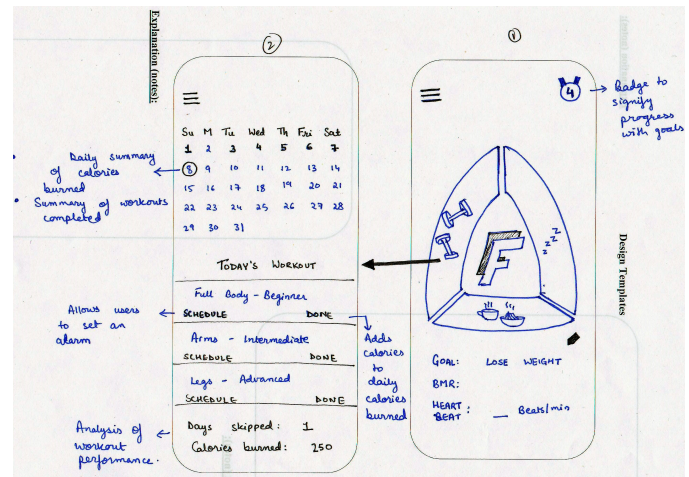 Explanation (notes):
2
Su M Tu Wed Th Fri Sat
1 2 3 4 5 6 7
8 9 10 11 12 13 14
15 16 17 18 19 20 21
22 23 24 25 26 27 28
29 30 31
• Daily summary
of calories
burned
• Summary of workouts
completed
TODAY'S WORKOUT
Full Body - Beginner
SCHEDULE DONE
Arms - Intermediate
SCHEDULE DONE
Legs - Advanced
SCHEDULE DONE
Days skipped: 1
Calories burned: 250
Allows users
to set an
alarm
Analysis of
workout
performance.
Adds
calories
to
daily
calories
burned
1
4
Badge to
signify
progress
with goals
Design Templates
F
z z z z
GOAL: LOSE WEIGHT
BMR:
HEART BEAT : __ Beats/min